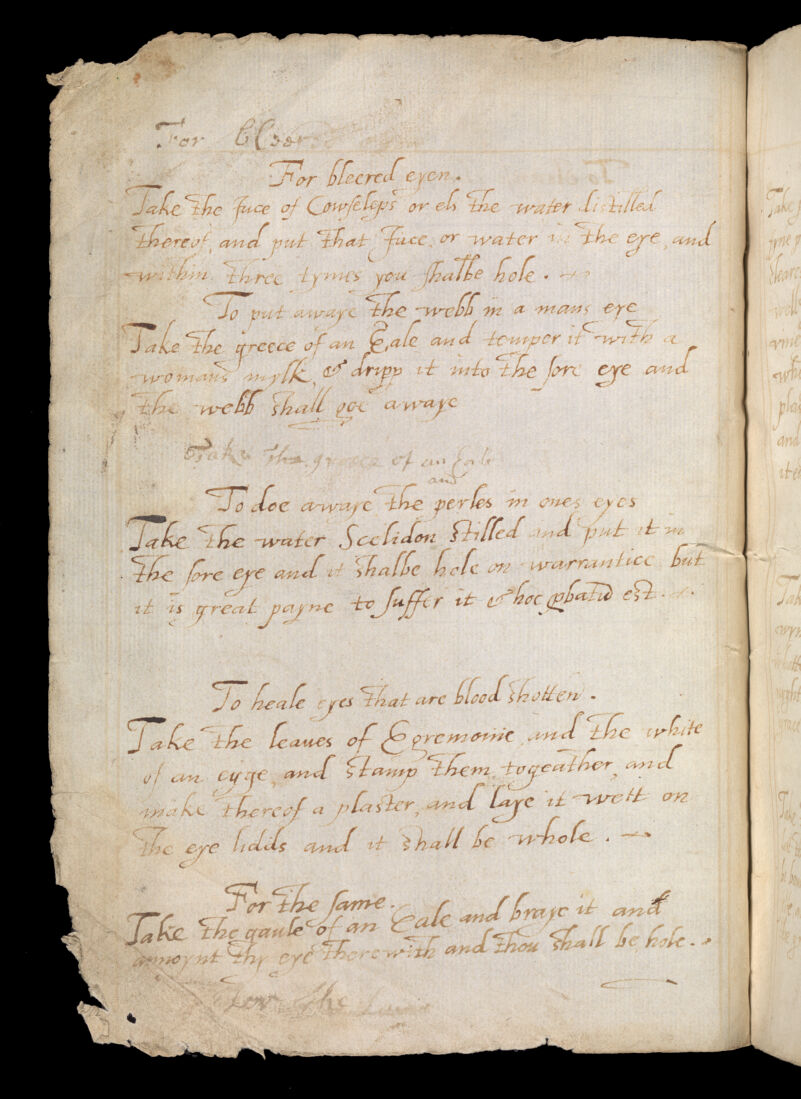 For bleered
For bleered eyen.
Take the Juce of Cowseleps or els the water distilled
thereof, and put that Juce, or water in the eye, and
within three tymes you shalbe hole.
To put awaye the webb in a mans eye
Take the greece of an Eale and temper it with a
womans mylk, & dripp it into the sore eye and
the webb shall goe awaye
Take the greece of an Eale
and
To doe awaye the perles in ones eyes
Take the water Scelidon stilled and put it in
the sore eye and it shalbe hole on warrantice, but
it is great payne to suffer it & hoc ꝓbatū est.
To heale eyes that are blood shotten.
Take the leaves of Egremonie, and the white
of an eyge, and stamp them togeather, and
make thereof a plaster, and laye it well on
the eye lidds and it shall be whole.
For the same.
Take the gaule of an Eale and braye it and
annoynt thy eye therewith and thou shall be hole.
For the